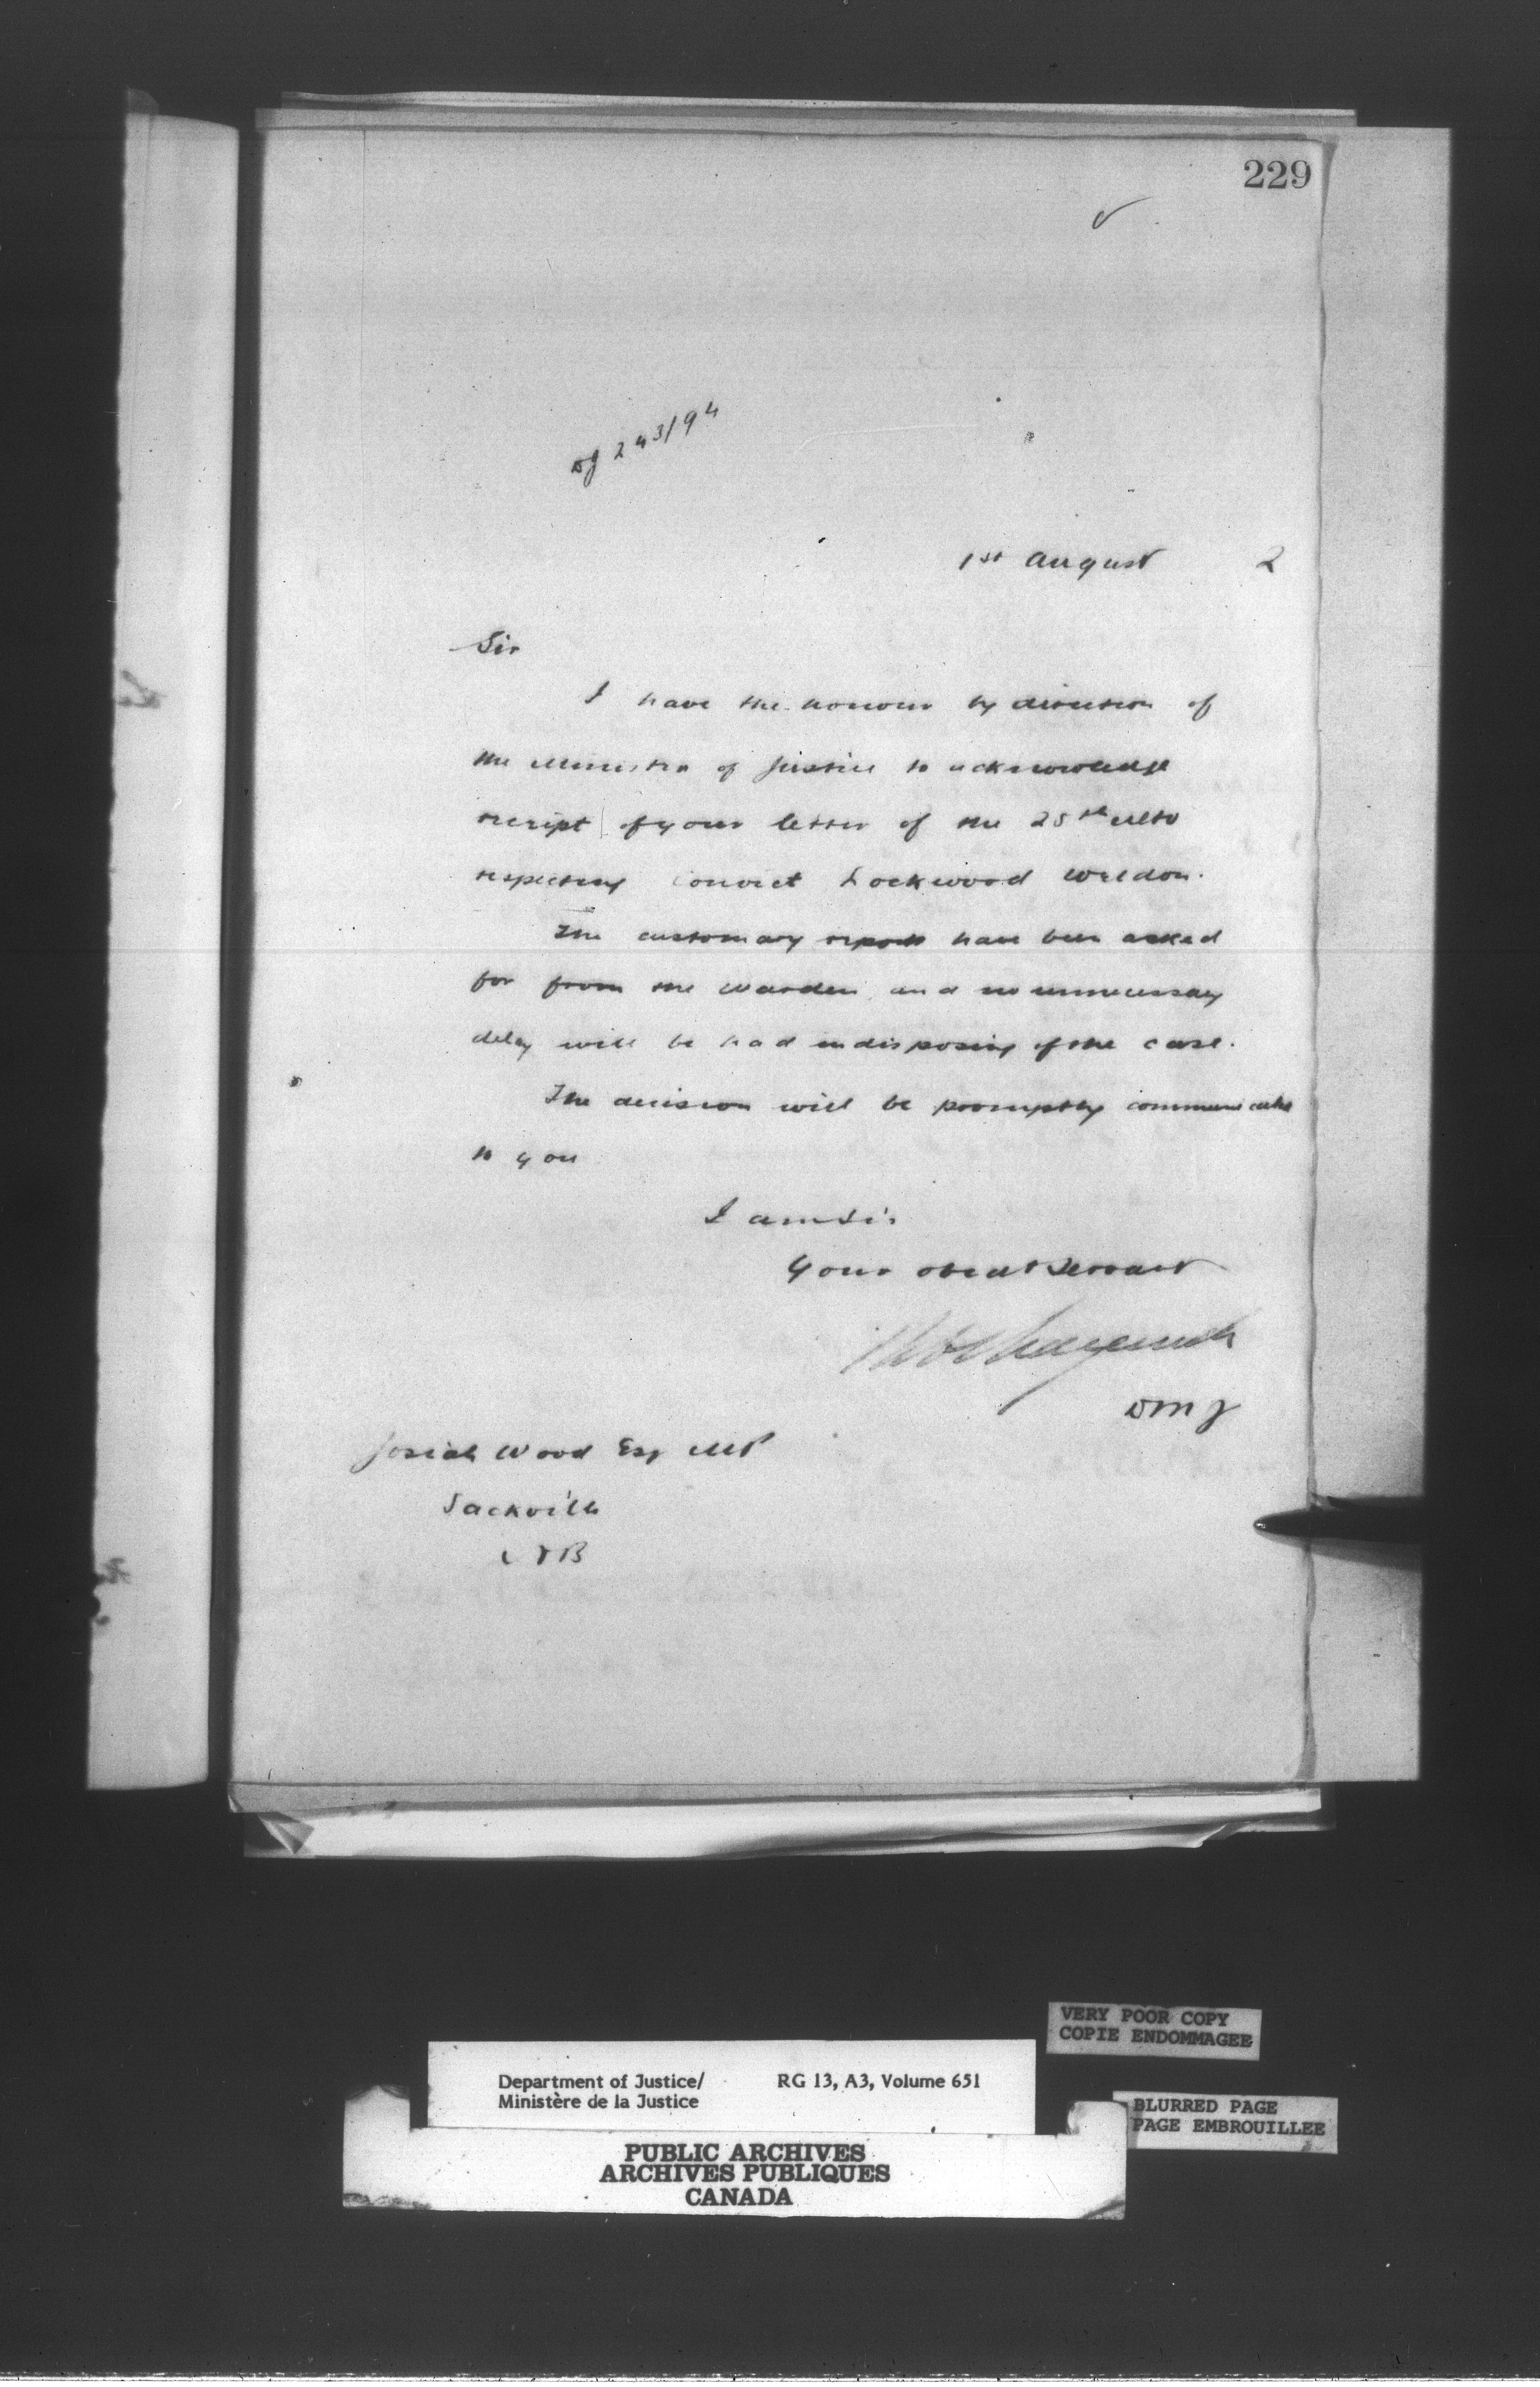 229
DJ 243/94
1st August 2
Sir
I have the honour by direction of
the Minister of Justice to acknowledge
receipt of your letter of the 28th ulto
respecting convict Lockwood Weldon.
The customary reports have been asked
for from the Warden, and no unnecessary
delay will be had in disposing of the case.
The decision will be promptly communicated
to you
I am Sir
Your obedt Servant
DMJ
Josiah Wood Esq MP
Sackville
NB
VERY POOR COPY
COPIE ENDOMMAGEE
Department of Justice/ RG 13, A3, Volume 651
Ministère de la Justice
BLURRED PAGE
PAGE EMBROUILLEE
PUBLIC ARCHIVES
ARCHIVES PUBLIQUES
CANADA